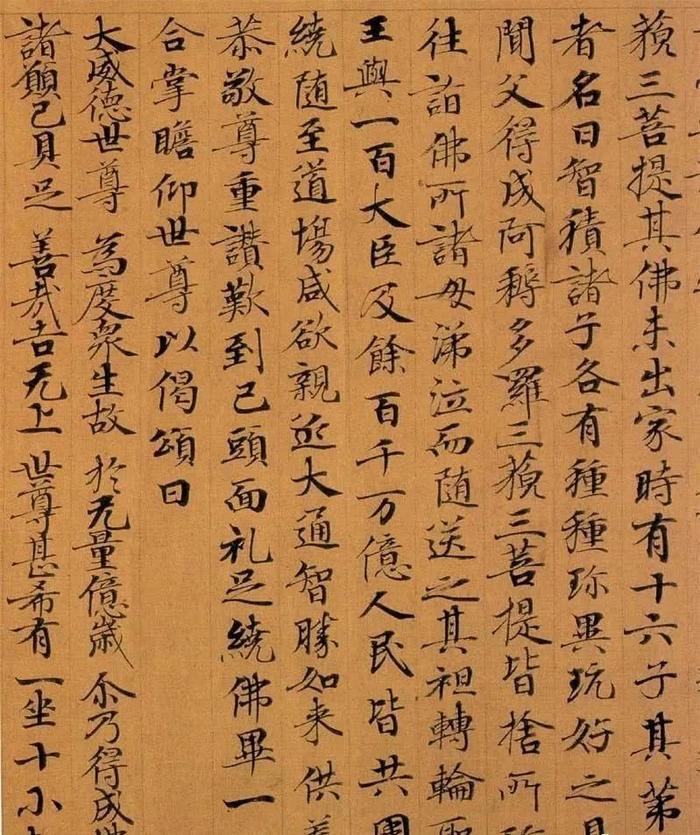 藐三菩提其佛未出家時有十六子其第
者名曰智積諸子各有種種珍異玩好之具
聞父得成阿耨多羅三藐三菩提皆捨所
往詣佛所諸母涕泣而隨送之其祖轉輪
王與一百大臣及餘百千万億人民皆共圍
繞随至道場咸欲親近大通智勝如来供養
恭敬尊重讚歎到已頭面礼足繞佛畢一
合掌瞻仰世尊以偈頌曰
大威德世尊 為度衆生故 於无量億歲 尒乃得成
諸願已具足 善哉吉无上 世尊甚希有 一坐十小